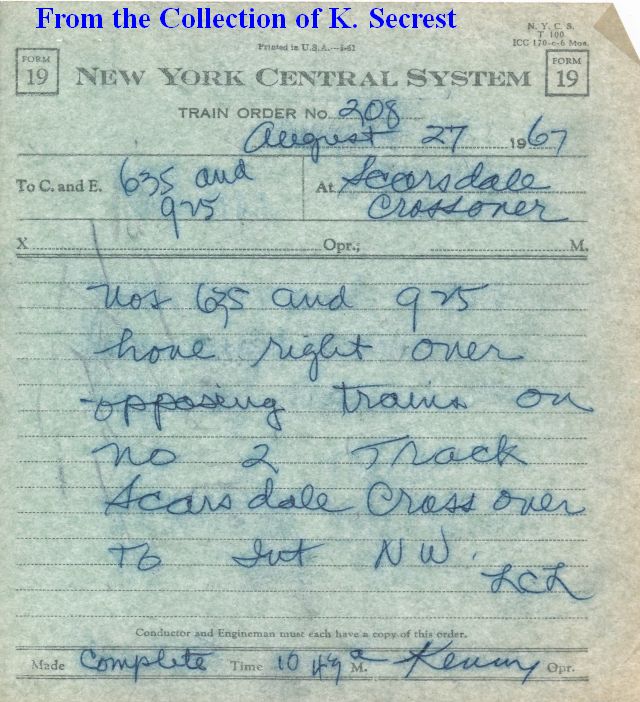 From the Collection of K. Secrest
N. Y. C. S.
T 100
ICC 170-c-6 Mos.
Printed in U.S.A.—1-61
FORM
19
NEW YORK CENTRAL SYSTEM
FORM
19
TRAIN ORDER No. 208
August 27 1967
To C. and E. 635 and
925
At Scarsdale
Crossover
X Opr.; M.
Nos 635 and 925
have right over
opposing trains on
No 2 Track
Scarsdale Crossover
To Int NW.
LCL
Conductor and Engineman must each have a copy of this order.
Made Complete Time 10 49 a M. Kenny Opr.